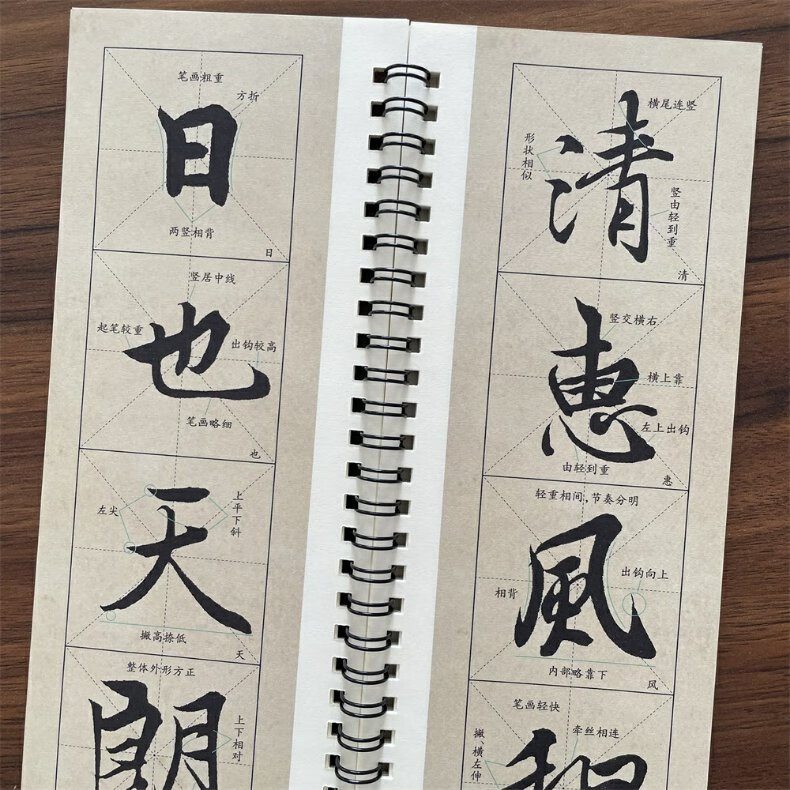 笔画粗重
方折
日
两竖相背
日
竖居中线
起笔较重
出钩较高
也
笔画略细
也
上平下斜
左尖
天
撇高捺低
天
整体外形方正
朗
上下相对
横尾连竖
形状相似
清
竖由轻到重
清
竖交横右
横上靠
惠
左上出钩
由轻到重
惠
轻重相间,节奏分明
出钩向上
相背
風
内部略靠下
风
笔画轻快
牵丝相连
撇横左伸
和